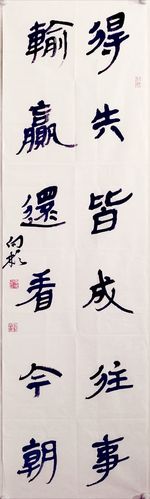 得失皆成往事
輸贏還看今朝